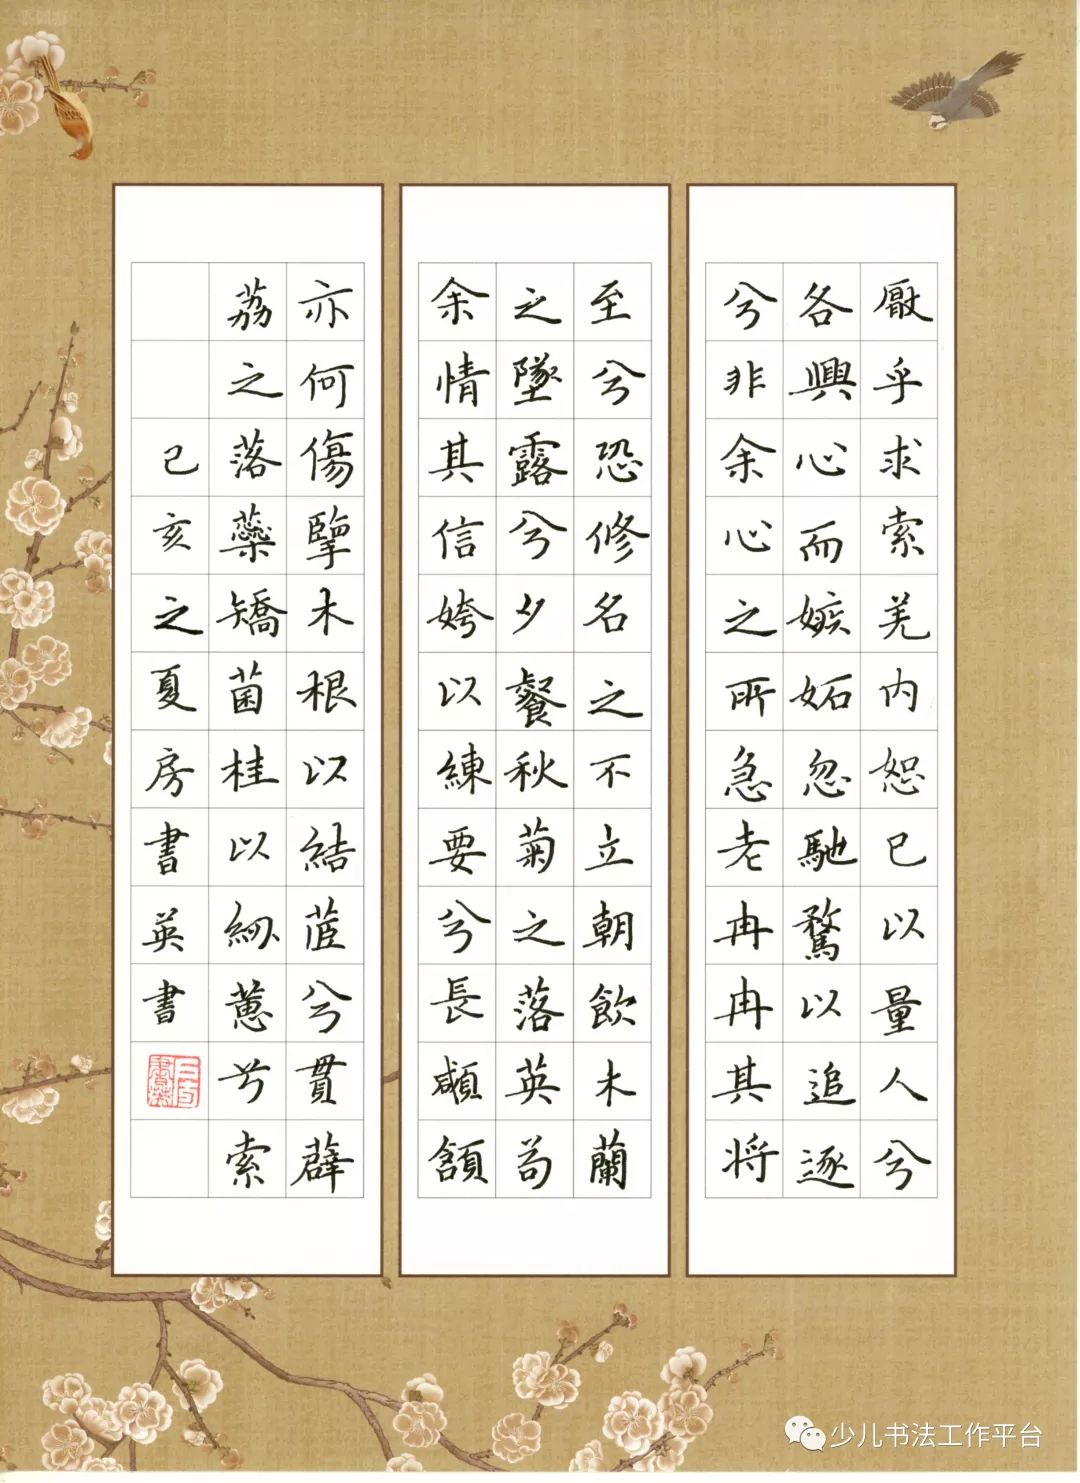 厭乎求索羌内恕已以量人兮
各興心而嫉妬忽馳騖以追逐
兮非余心之所急老冉冉其將
至兮恐修名之不立朝飲木蘭
之墜露兮夕餐秋菊之落英苟
余情其信姱以練要兮長顑頷
亦何傷擥木根以結茝兮貫薜
荔之落蘂矯菌桂以紉蕙兮索
己亥之夏房書英書
少儿书法工作平台